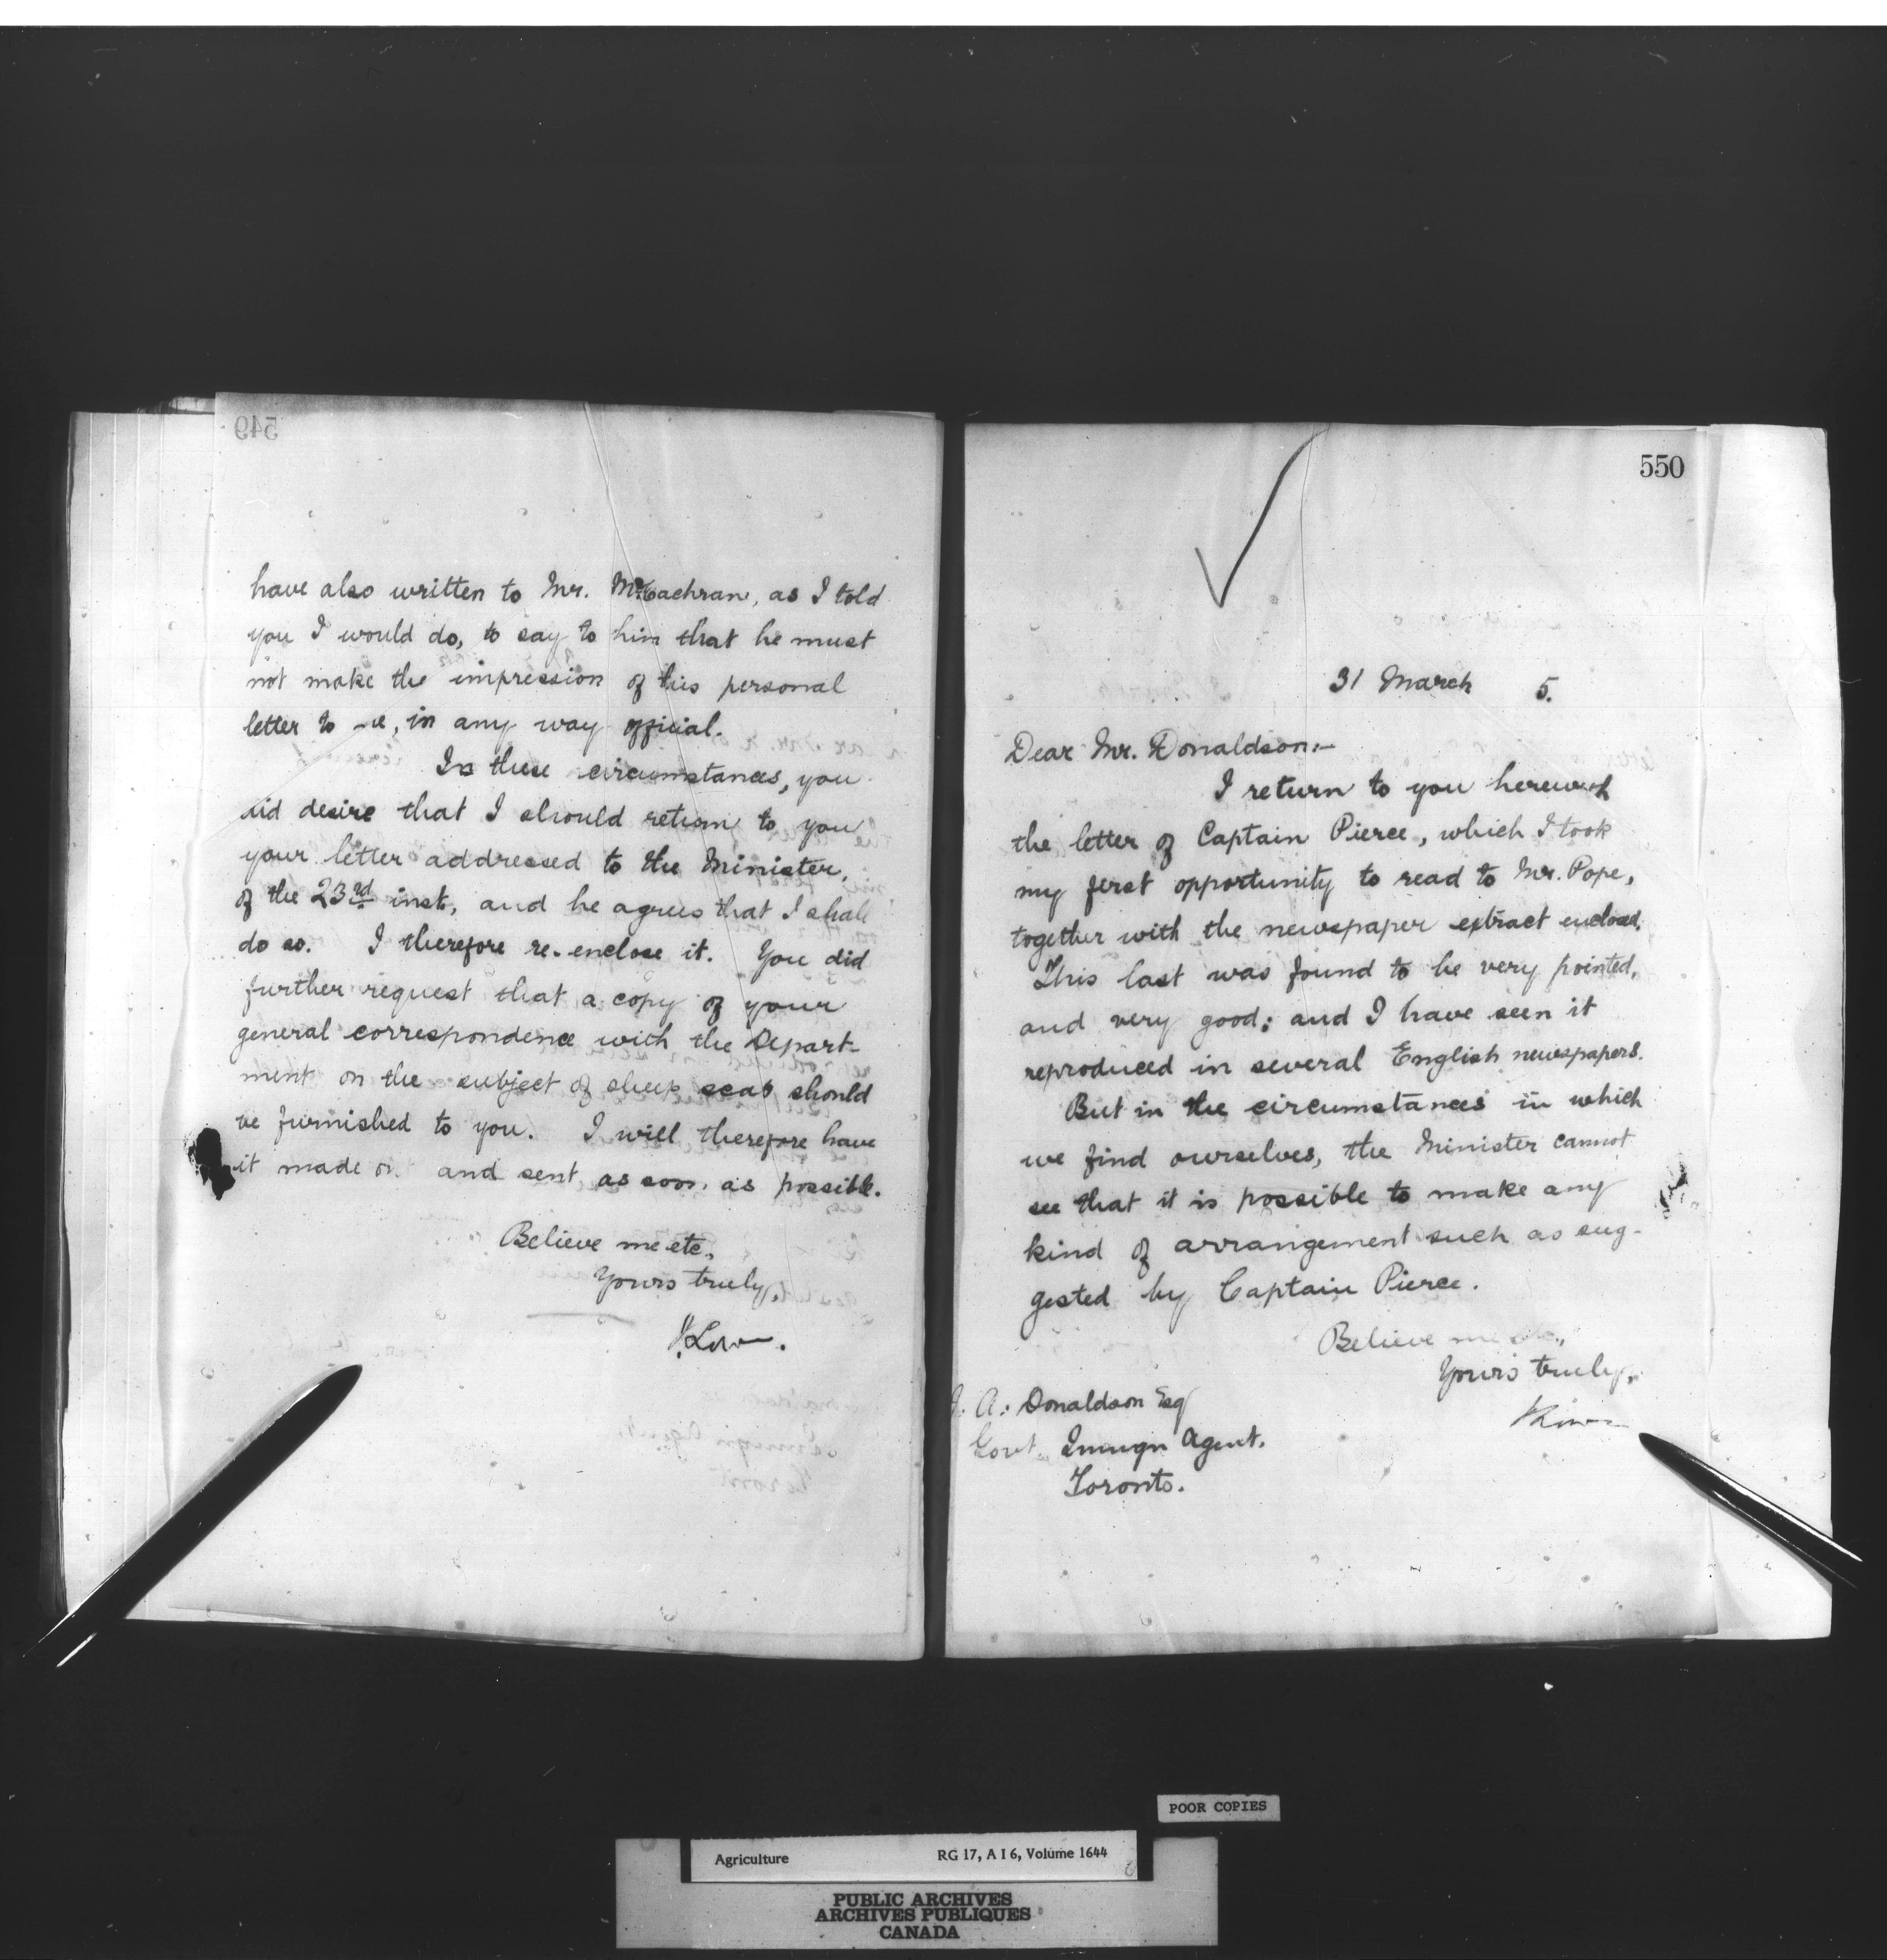 549
have also written to Mr. McEachran, as I told
you I would do, to say to him that he must
not make the impression of his personal
letter to me, in any way official.
In these circumstances, you
did desire that I should return to you
your letter addressed to the Minister,
of the 23rd inst, and he agrees that I shall
do so. I therefore re-enclose it. You did
further request that a copy of your
general correspondence with the Depart-
ment on the subject of sheep scab should
be furnished to you. I will therefore have
it made out and sent as soon as possible.
Believe me etc,
Yours truly,
J. Lowe.
550
31 March 5.
Dear Mr. Donaldson:-
I return to you herewith
the letter of Captain Pierce, which I took
my first opportunity to read to Mr. Pope,
together with the newspaper extract enclosed.
This last was found to be very pointed,
and very good; and I have seen it
reproduced in several English newspapers.
But in the circumstances in which
we find ourselves, the Minister cannot
see that it is possible to make any
kind of arrangement such as sug-
gested by Captain Pierce.
Believe me etc.,
Yours truly,
J Lowe
J. A. Donaldson Esq
Govt. Immgn Agent.
Toronto.
POOR COPIES
Agriculture RG 17, A I 6, Volume 1644
PUBLIC ARCHIVES
ARCHIVES PUBLIQUES
CANADA